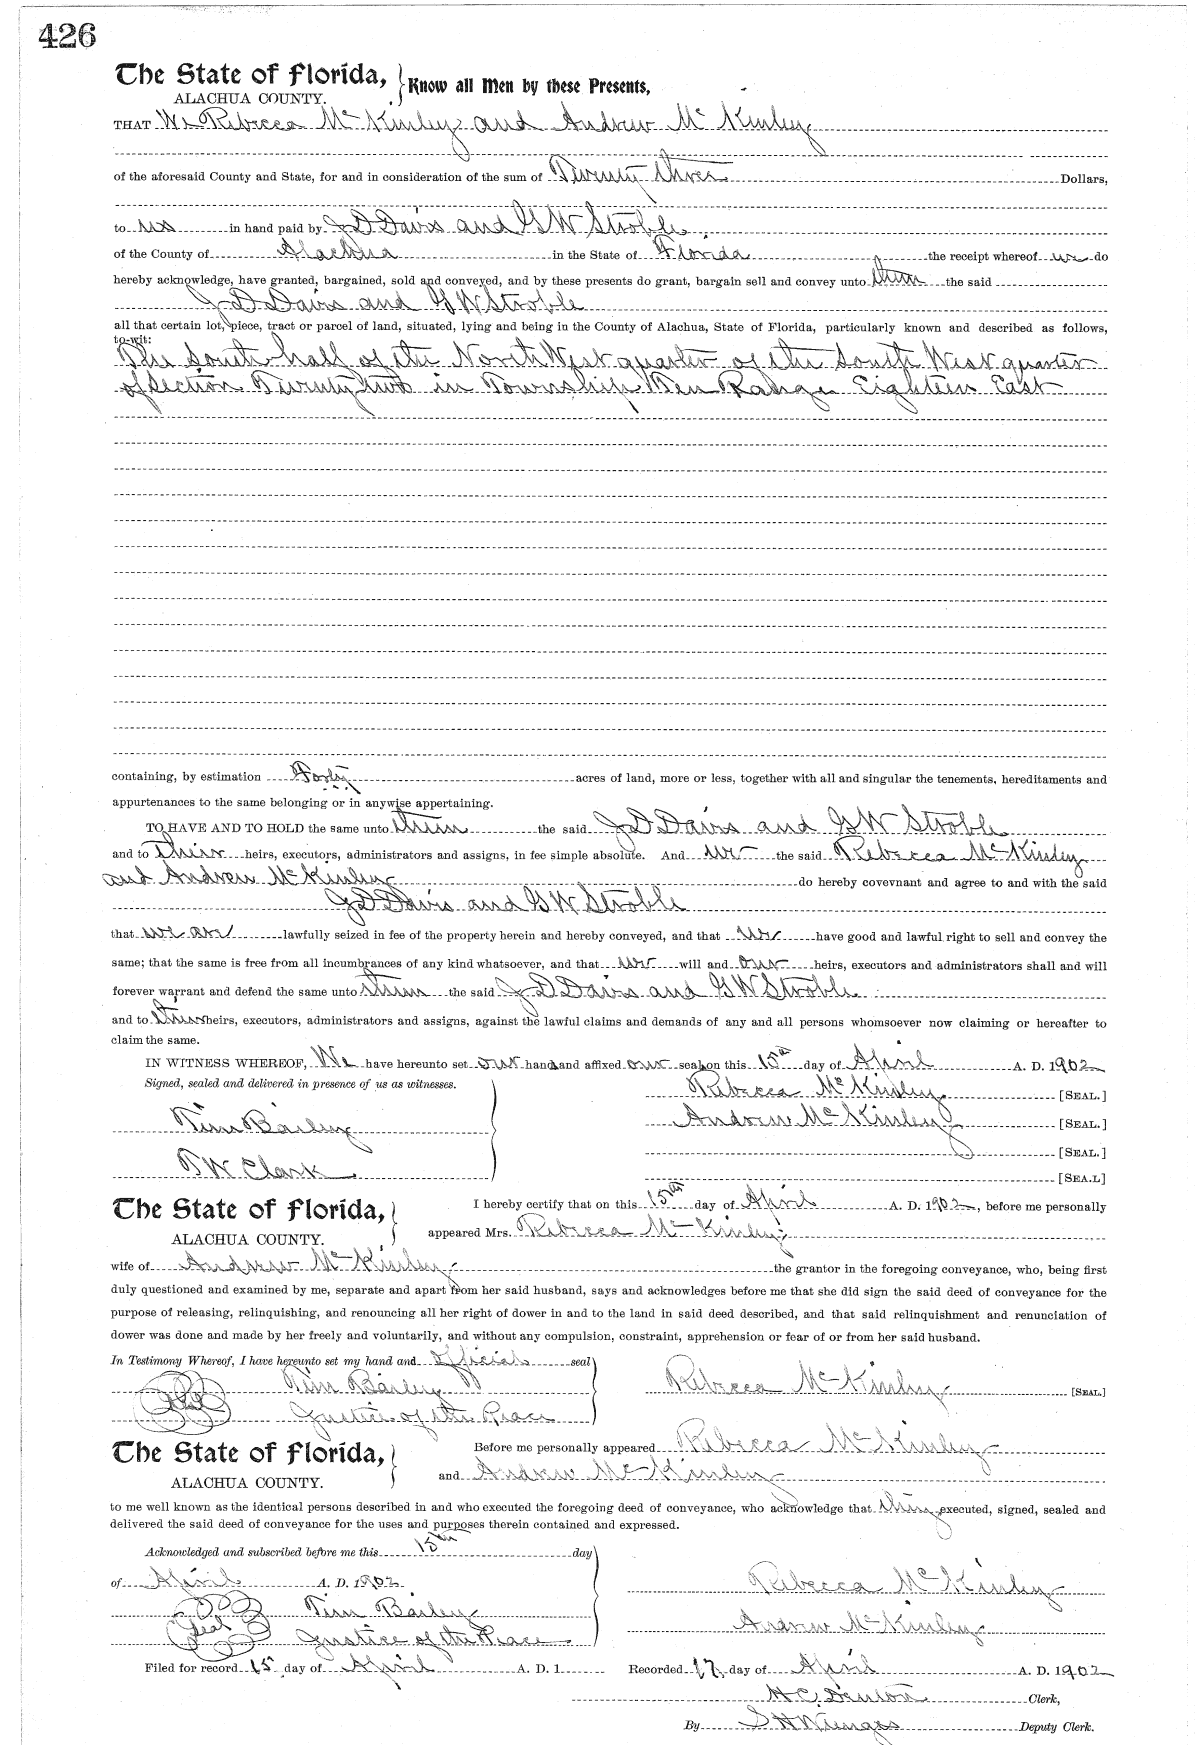 426
The State of Florida, Know all Men by these Presents,
ALACHUA COUNTY.
THAT We Rebecca McKinley and Andrew McKinley
of the aforesaid County and State, for and in consideration of the sum of Twenty three Dollars,
to us in hand paid by J D Davis and G W Stroble
of the County of Alachua in the State of Florida the receipt whereof we do
hereby acknowledge, have granted, bargained, sold and conveyed, and by these presents do grant, bargain sell and convey unto them the said
J D Davis and G W Stroble
all that certain lot, piece, tract or parcel of land, situated, lying and being in the County of Alachua, State of Florida, particularly known and described as follows,
to-wit:
The South half of the North West quarter of the South West quarter
of Section Twenty two in Township Ten Range Eighteen East
containing, by estimation Forty acres of land, more or less, together with all and singular the tenements, hereditaments and
appurtenances to the same belonging or in anywise appertaining.
TO HAVE AND TO HOLD the same unto them the said J D Davis and G W Stroble
and to their heirs, executors, administrators and assigns, in fee simple absolute. And we the said Rebecca McKinley
and Andrew McKinley do hereby covevnant and agree to and with the said
J D Davis and G W Stroble
that we are lawfully seized in fee of the property herein and hereby conveyed, and that we have good and lawful right to sell and convey the
same; that the same is free from all incumbrances of any kind whatsoever, and that we will and our heirs, executors and administrators shall and will
forever warrant and defend the same unto them the said J D Davis and G W Stroble
and to their heirs, executors, administrators and assigns, against the lawful claims and demands of any and all persons whomsoever now claiming or hereafter to
claim the same.
IN WITNESS WHEREOF, We have hereunto set our hands and affixed our seals on this 15th day of April A. D. 1902
Signed, sealed and delivered in presence of us as witnesses.
Rebecca McKinley [SEAL.]
Tim Bailey
Andrew McKinley [SEAL.]
[SEAL.]
T W Clark
[SEA.L]
The State of Florida, I hereby certify that on this 15th day of April A. D. 1902, before me personally
ALACHUA COUNTY. appeared Mrs. Rebecca McKinley
wife of Andrew McKinley the grantor in the foregoing conveyance, who, being first
duly questioned and examined by me, separate and apart from her said husband, says and acknowledges before me that she did sign the said deed of conveyance for the
purpose of releasing, relinquishing, and renouncing all her right of dower in and to the land in said deed described, and that said relinquishment and renunciation of
dower was done and made by her freely and voluntarily, and without any compulsion, constraint, apprehension or fear of or from her said husband.
In Testimony Whereof, I have hereunto set my hand and official seal
Seal Tim Bailey Rebecca McKinley [SEAL]
Justice of the Peace
The State of Florida, Before me personally appeared Rebecca McKinley
ALACHUA COUNTY. and Andrew McKinley
to me well known as the identical persons described in and who executed the foregoing deed of conveyance, who acknowledge that they executed, signed, sealed and
delivered the said deed of conveyance for the uses and purposes therein contained and expressed.
Acknowledged and subscribed before me this 15th day
of April A. D. 1902 Rebecca McKinley
Seal Tim Bailey Andrew McKinley
Justice of the Peace
Filed for record 15 day of April A. D. 1 Recorded 17 day of April A. D. 1902
H C Denton Clerk,
By S H Wienges Deputy Clerk.